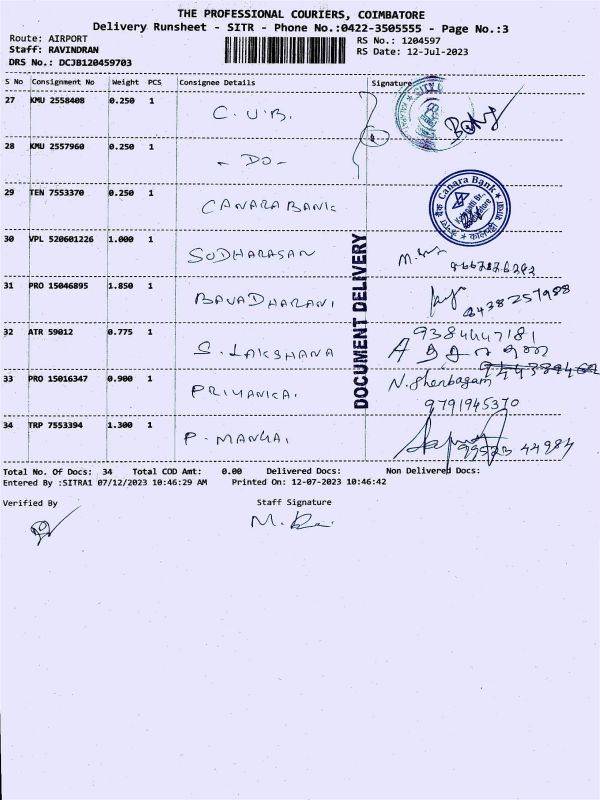 THE PROFESSIONAL COURIERS, COIMBATORE
Delivery Runsheet - SITR - Phone No.:0422-3505555 - Page No.:3
Route: AIRPORT
RS No.: 1204597
Staff: RAVINDRAN
RS Date: 12-Jul-2023
DRS No.: DCJB120459703
S No Consignment No Weight PCS Consignee Details Signature
27 KMU 2558408 0.250 1 C.U.B.
28 KMU 2557960 0.250 1 - DO -
29 TEN 7553370 0.250 1 CANARA BANK
Canara Bank
30 VPL 520601226 1.000 1 SUDHARASAN
31 PRO 15046895 1.850 1 BAVADHARANI
8438257988
32 ATR 59012 0.775 1 S. LAKSHANA 9384447181
33 PRO 15016347 0.900 1 PRIYANKA. N. Shenbagam
9791945370
34 TRP 7553394 1.300 1 P. MANGAI 99523 44984
DOCUMENT DELIVERY
Total No. Of Docs: 34 Total COD Amt: 0.00 Delivered Docs: Non Delivered Docs:
Entered By :SITRA1 07/12/2023 10:46:29 AM Printed On: 12-07-2023 10:46:42
Verified By Staff Signature